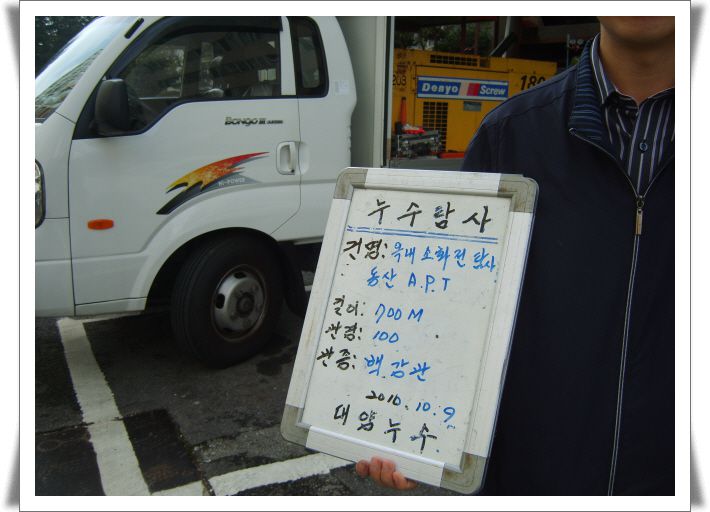 BONGO III
HI-POWER
203
Denyo
Screw
180
누수탐사
건명: 옥내 소화전 탐사
동산 A.P.T
길이: 700M
관경: 100
관종: 백강관
2010.10.9
대양누수